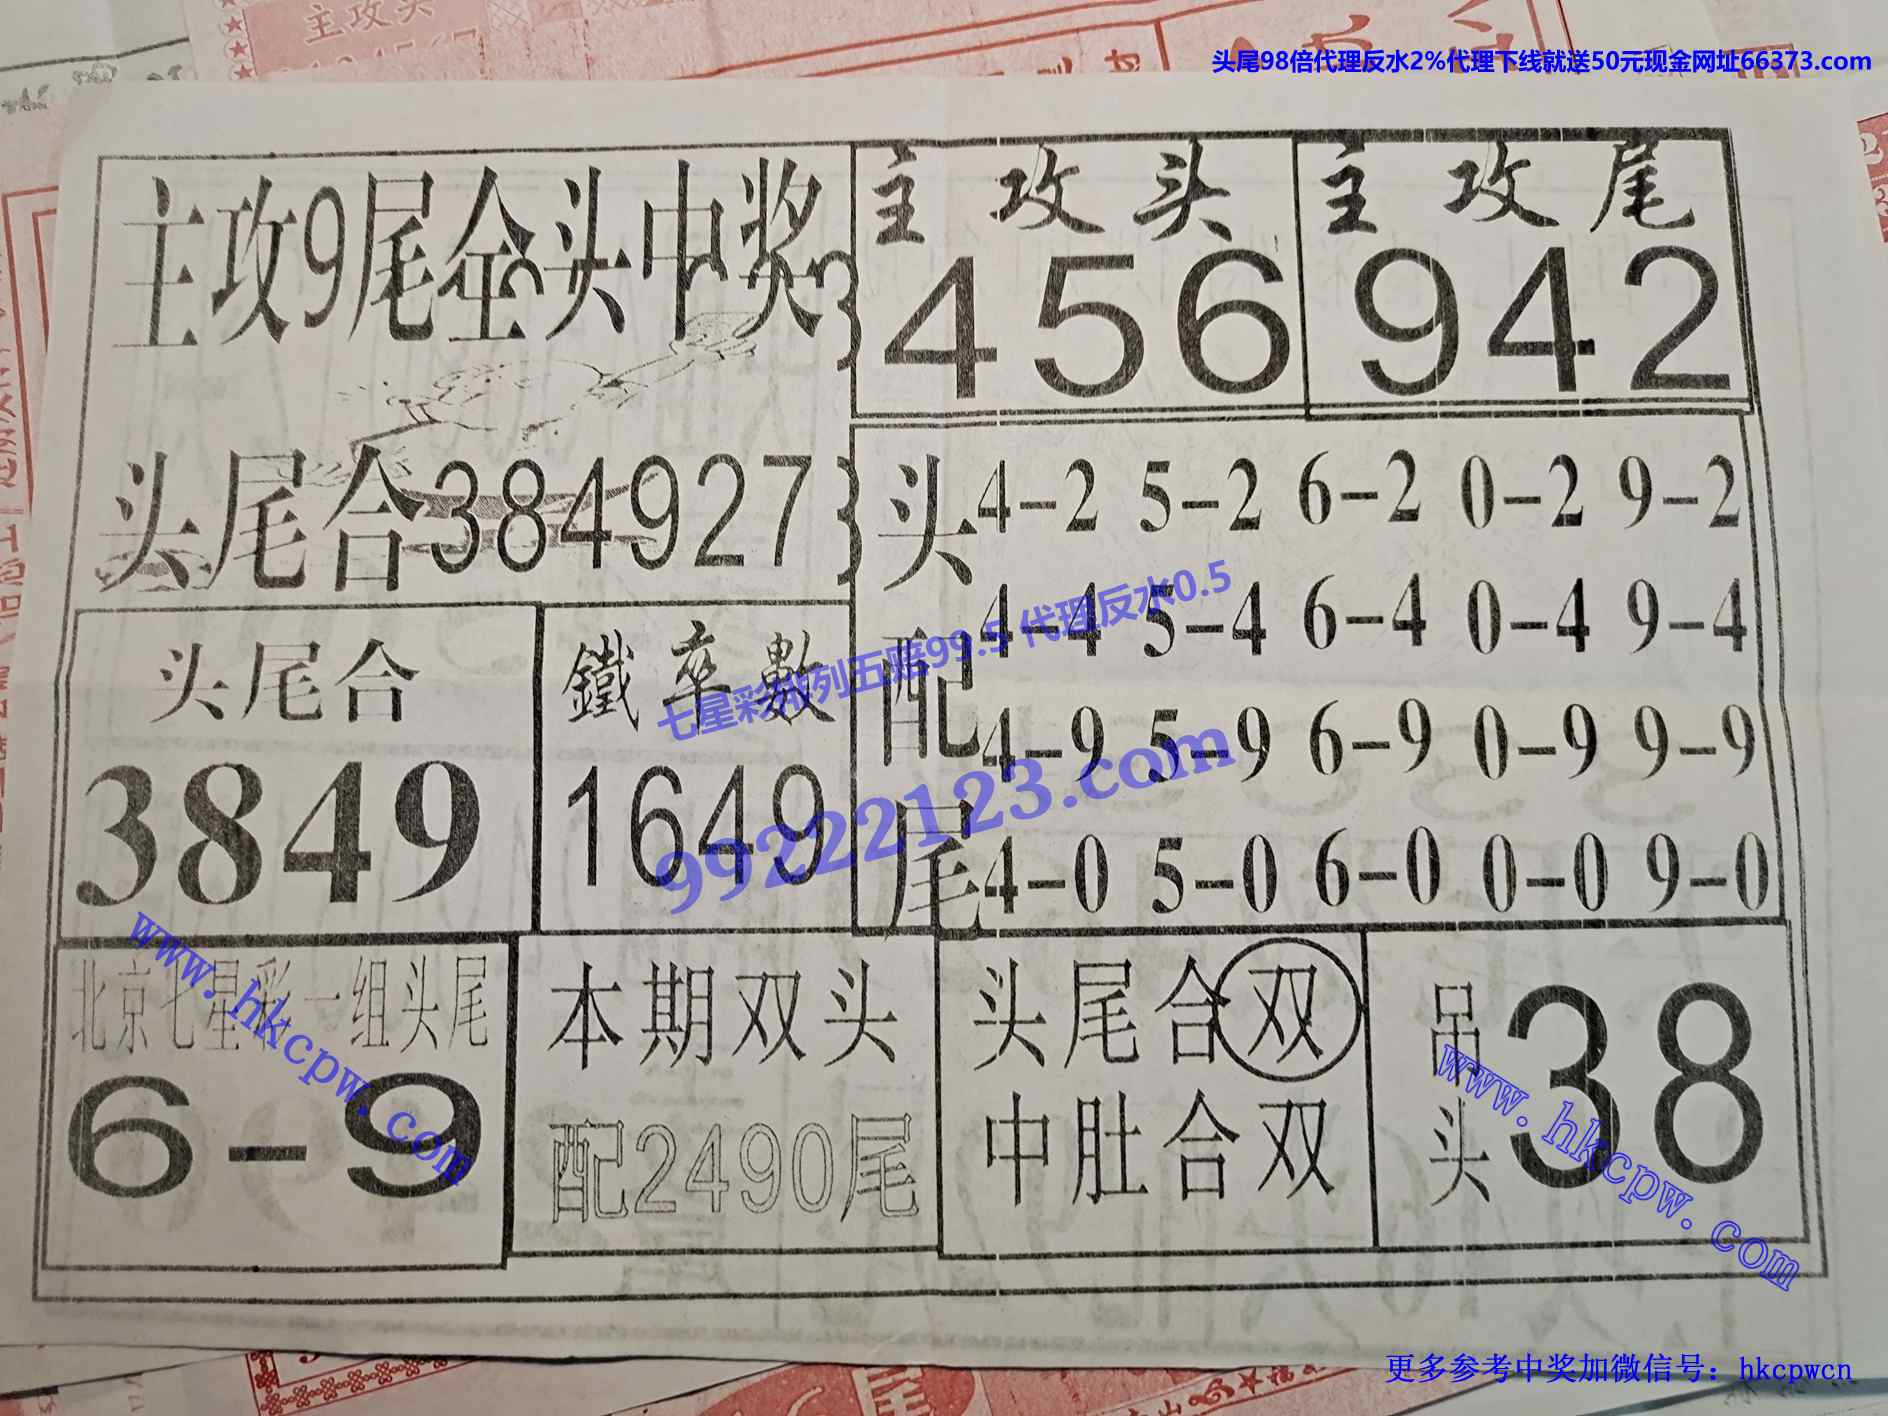 主攻头
头尾98倍代理反水2%代理下线就送50元现金网址66373.com
主攻9尾全头中奖
头尾合384927
主攻头
456
主攻尾
942
头配尾
4-2 5-2 6-2 0-2 9-2
4-4 5-4 6-4 0-4 9-4
4-9 5-9 6-9 0-9 9-9
4-0 5-0 6-0 0-0 9-0
头尾合
3849
鐵率數
1649
七星彩排列五赔99.5 代理反水0.5
99222123.com
北京七星彩一组头尾
6-9
www.hkcpw.com
本期双头
配2490尾
头尾合双
中肚合双
吊头
38
www.hkcpw.com
更多参考中奖加微信号：hkcpwcn